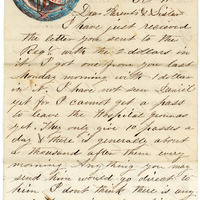 Dear Parents & Friends
I have just received
the letter you sent to the
Regt. with the 2 dollars in
it. I got one from you last
Monday morning with 1 dollar
in it. I have not seen Daniel
yet for I cannot get a pass
to leave the Hospital grounds
yet. They only give 10 passes a
day & there is generally about
a thousand after them every
morning. Any thing you may
send him would go direct to
him. I dont think there is any